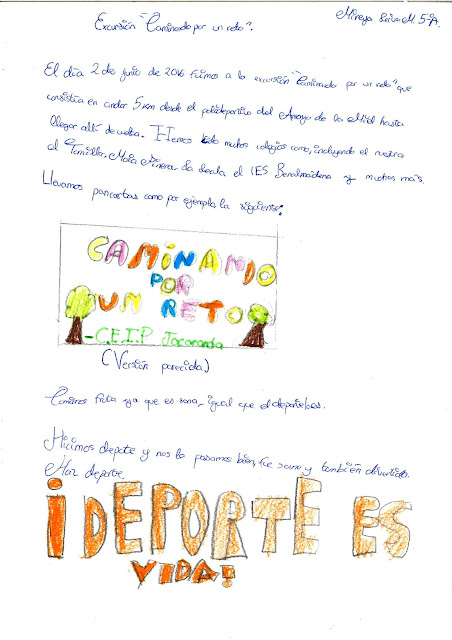 Excursión "Caminando por un reto".
5ºA.
El día 2 de junio de 2016 fuimos a la excursión "Caminando por un reto" que
consistía en andar 5 km desde el polideportivo del Arroyo de la Miel hasta
llegar allí de vuelta. muchos colegios como, incluyendo el nuestro
al Tomillar, María Zambrano, la escuela, el IES Benalmádena y muchos más.
Llevamos pancartas como por ejemplo la siguiente:
CAMINANDO
POR
UN RETO
-C.E.I.P Jacaranda
(Versión parecida)
Comimos fruta ya que es sana, igual que el deporte.
Hicimos deporte y nos lo pasamos bien, fue sano y también divertido.
Haz deporte.
¡DEPORTE ES
VIDA!